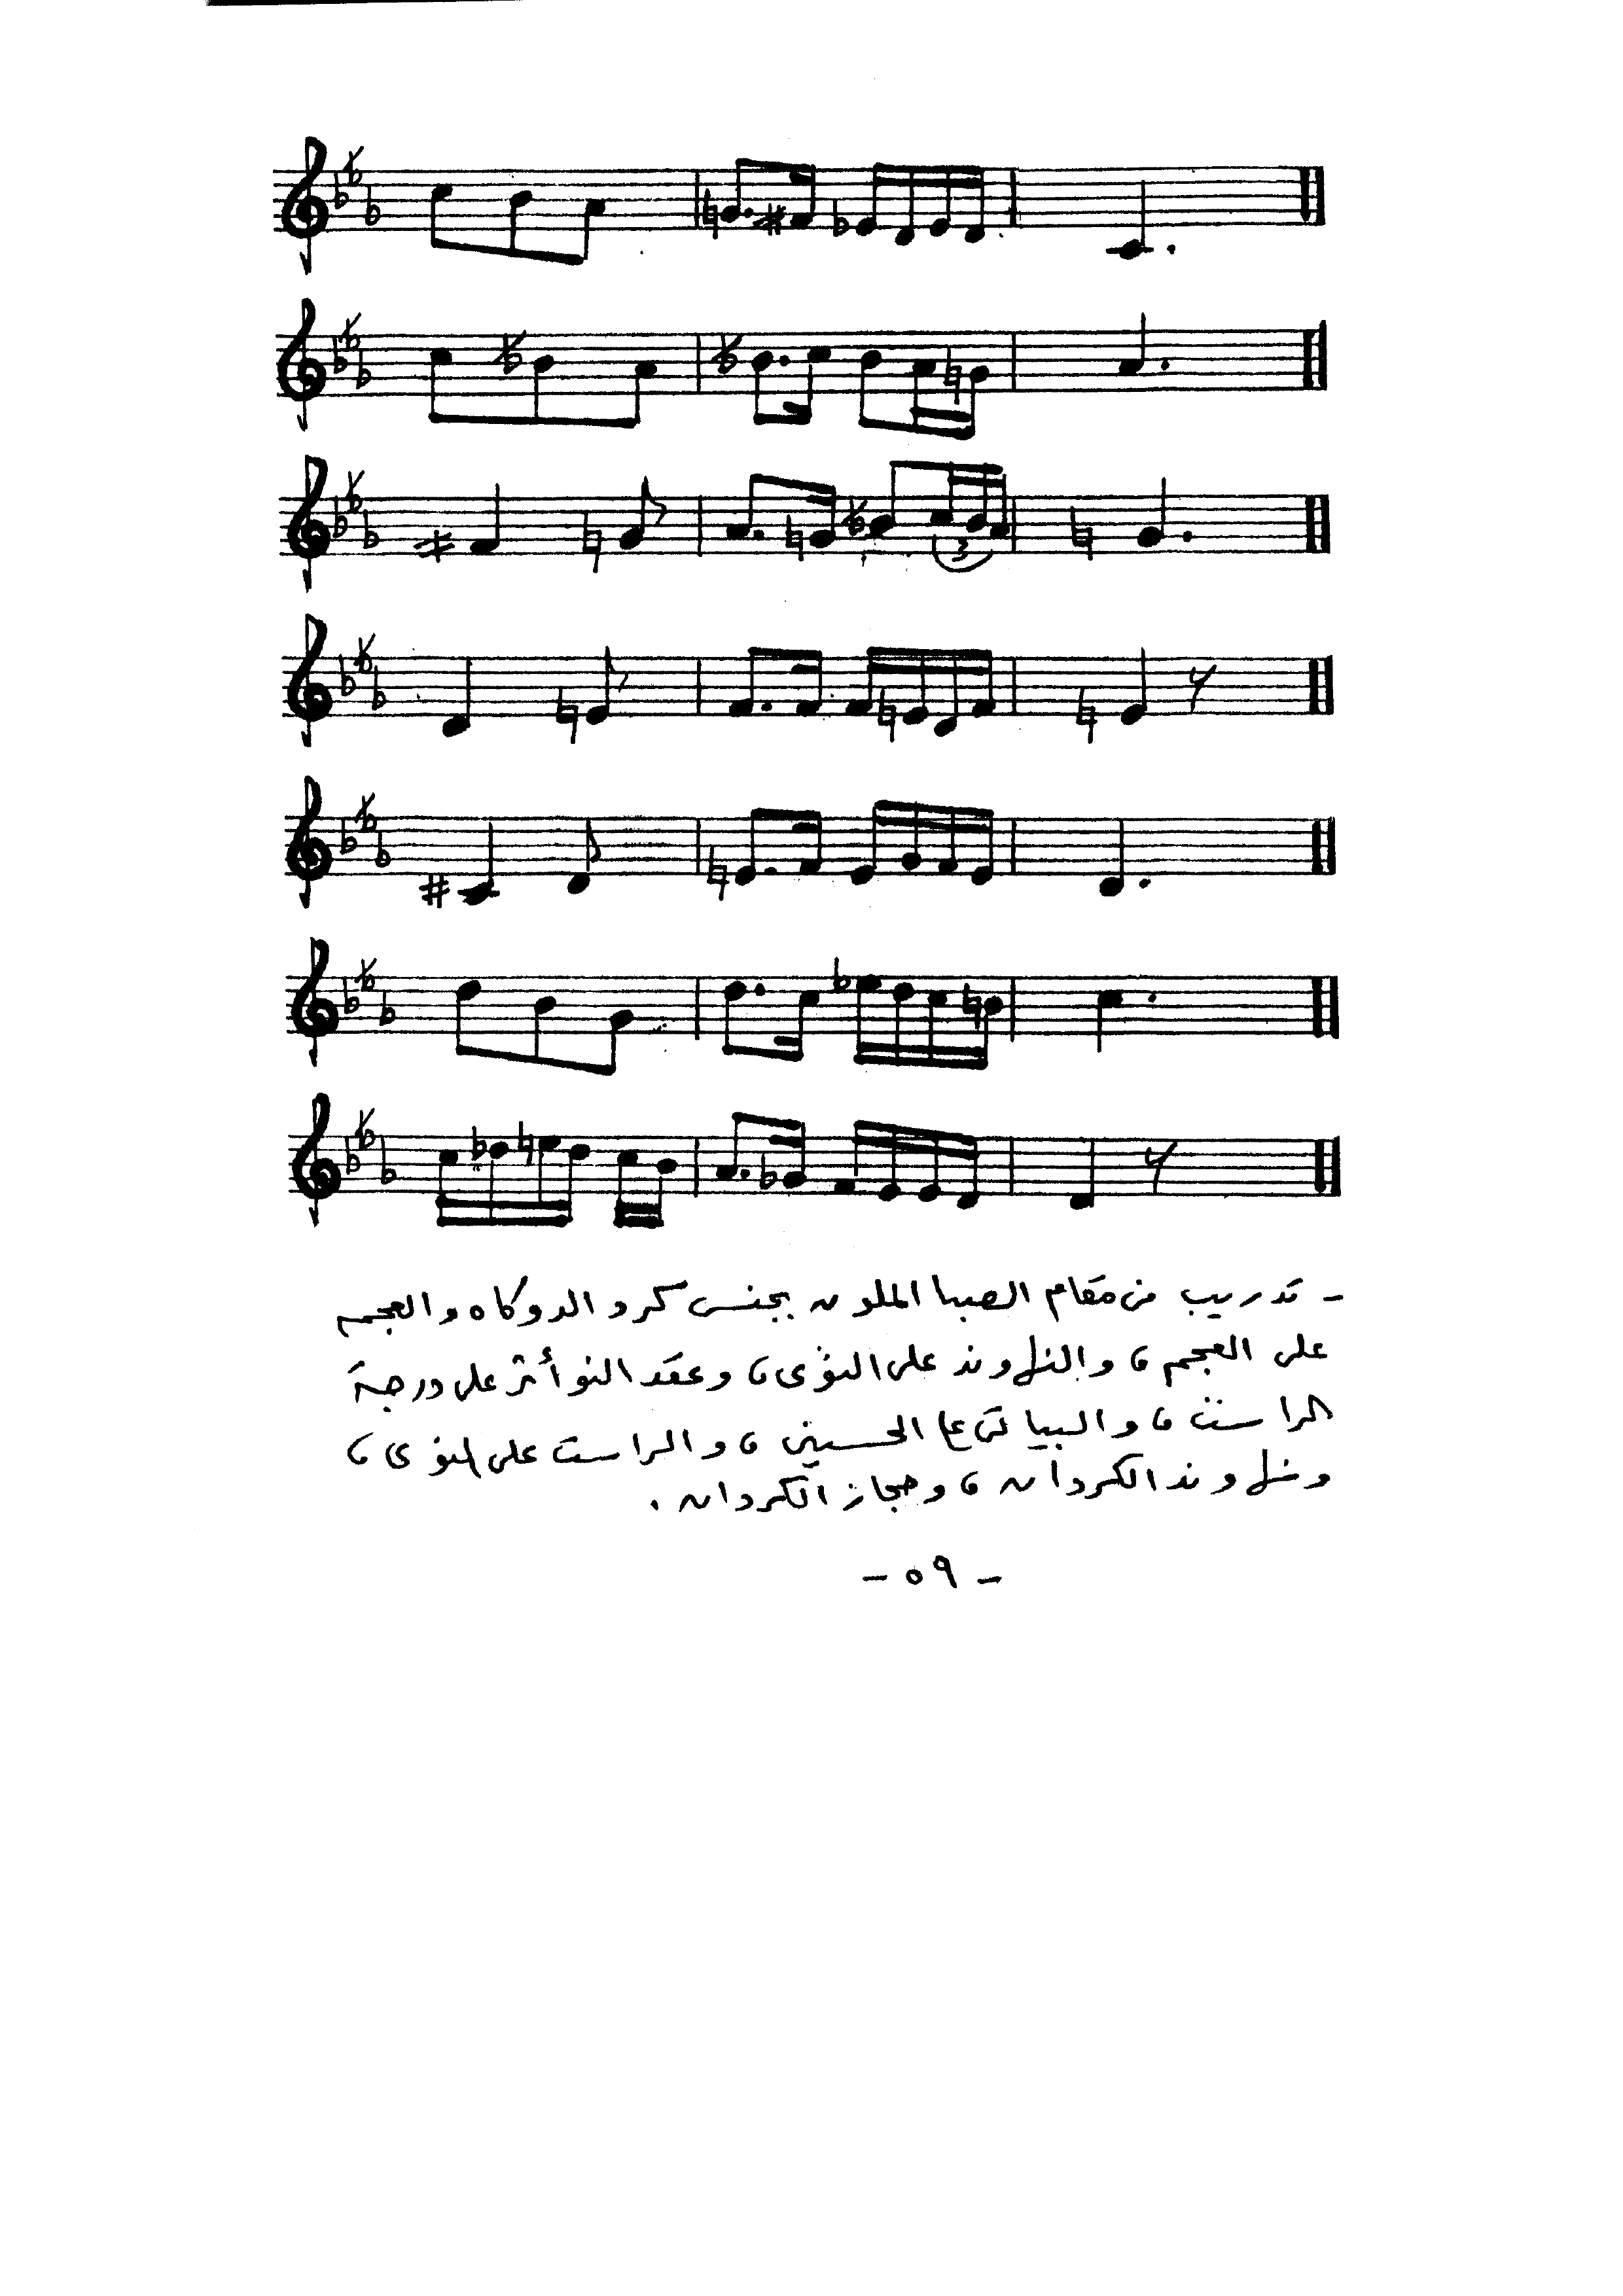 3
- تدريب من مقام الصبا الملون بجنس كرد الدوكاه والعجم
على العجم ، والنهاوند على النوى ، وعقد النوأثر على درجة
الراست ، والبياتي على الحسيني ، والراست على النوى ،
ونهاوند الكردان ، وحجاز الكردان .
- ٥٩ -